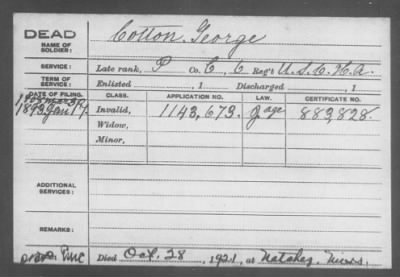 DEAD
NAME OF SOLDIER: Cotton George
SERVICE: Late rank, P Co. C, 6 Reg't U.S.C.H.A.
TERM OF SERVICE: Enlisted , 1 Discharged , 1
DATE OF FILING. CLASS. APPLICATION NO. LAW. CERTIFICATE NO.
1893 Jan 17 Invalid, 1143,673. g age 883,828.
Widow,
Minor,
ADDITIONAL SERVICES:
REMARKS:
Died Oct. 28, 1921, at Natchez, Miss.